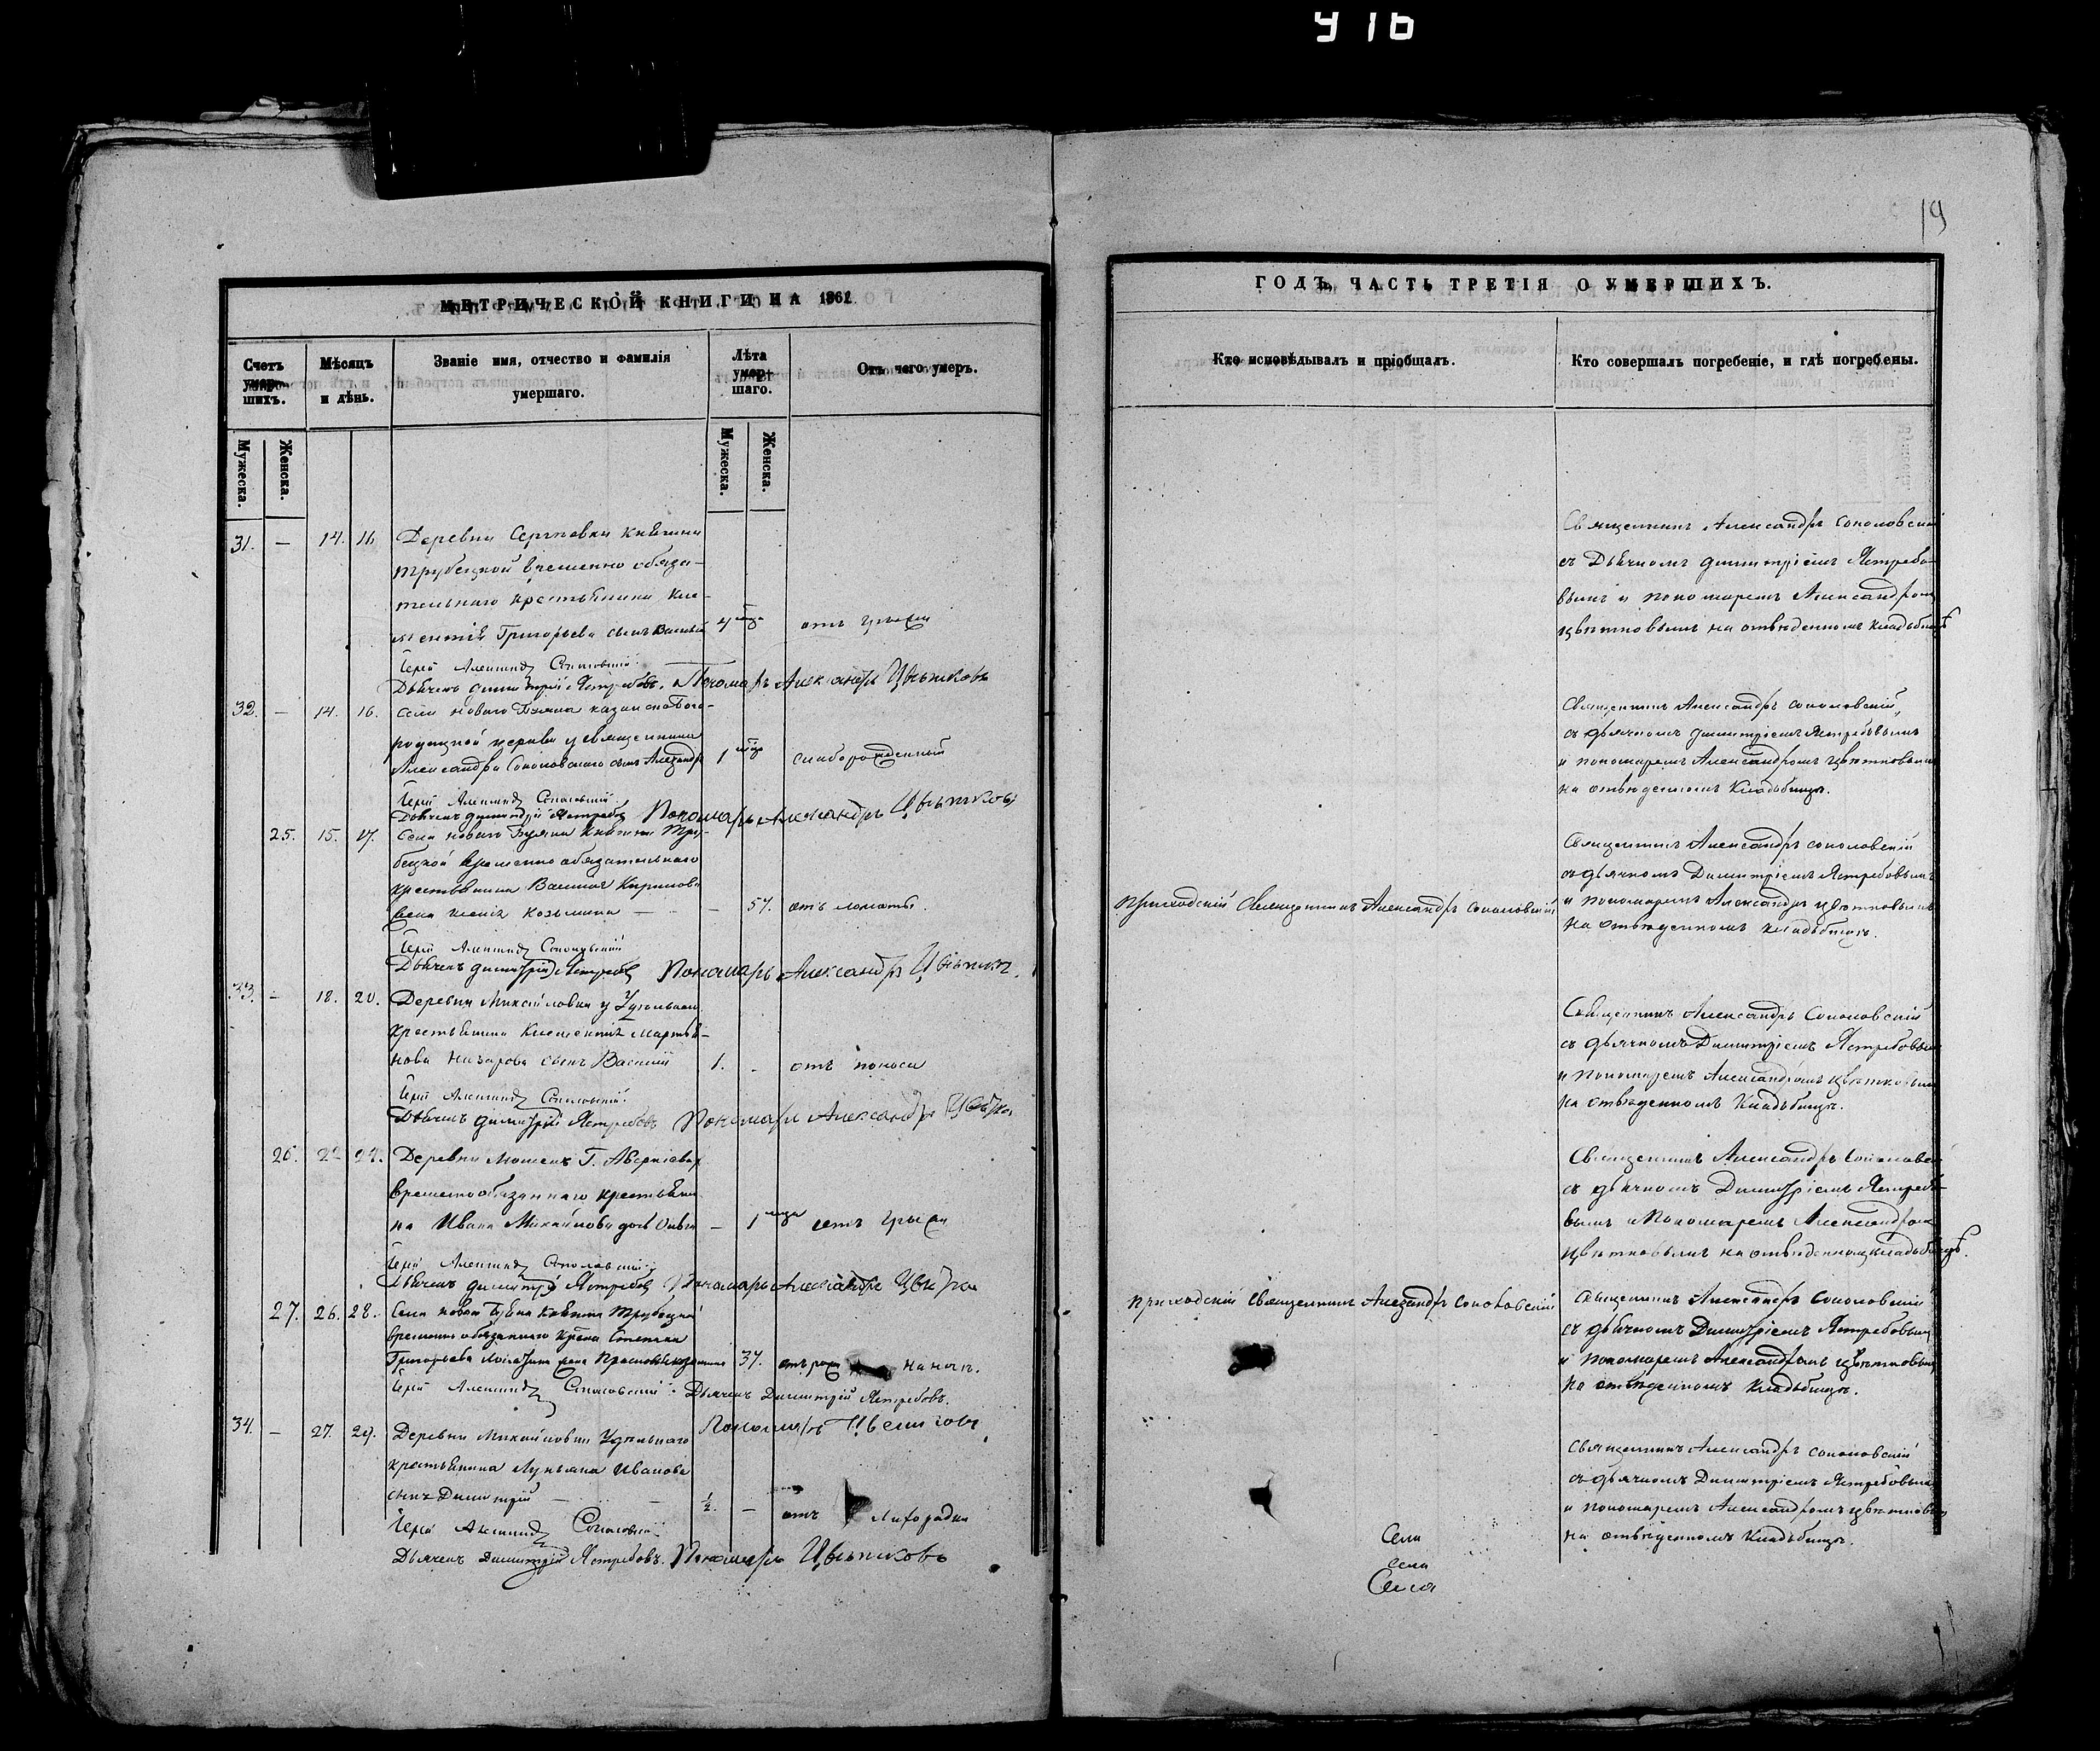 916
19
МЕТРИЧЕСКОЙ КНИГИ НА 1861
ГОДЪ, ЧАСТЬ ТРЕТІЯ О УМЕРШИХЪ.
Счетъ умер-шихъ.
Мѣсяцъ и дѣнь.
Званіе имя, отчество и фамилія умершаго.
Лѣта умер-шаго.
Отъ чего умеръ.
Кто исповѣдывалъ и пріобщалъ.
Кто совершалъ погребеніе, и гдѣ погребены.
Мужеска.
Женска.
Мужеска.
Женска.
31. — 14. 16. Деревни Сергѣевки Княгини
Трубецкой временно обяза-
тельнаго крестьянина Кле-
ментія Григорьева сынъ
Іерей Александръ Соколовскій
Дьячекъ Димитрій Ястребовъ. Пономарь Александръ Цвѣтковъ
Священникъ Александръ Соколовскій
съ Дьячкомъ Димитріемъ Ястребо-
вымъ и пономаремъ Александромъ
Цвѣтковымъ на отведенномъ кладбищѣ
32. — 14. 16. Села новаго Казанско Бого-
родицкой церкви у священника
Александра Соколовскаго сынъ Александръ 1 слаборожденный
Іерей Александръ Соколовскій
Дьячекъ Димитрій Ястребовъ Пономарь Александръ Цвѣтковъ
Священникъ Александръ Соколовскій
съ дьячкомъ Димитріемъ Ястребовымъ
и пономаремъ Александромъ Цвѣтковымъ
на отведенномъ Кладбищѣ.
25. 15. 17. Села новаго Княгини Тру-
бецкой временно обязательнаго
крестьянина Кирилова
жена Козьмина — — 57. отъ ломоты.
Іерей Александръ Соколовскій
Дьячекъ Димитрій Ястребовъ Пономарь Александръ Цвѣтковъ.
Приходскій Священникъ Александръ Соколовскій
Священникъ Александръ Соколовскій
съ дьячкомъ Димитріемъ Ястребовымъ
и пономаремъ Александромъ Цвѣтковымъ
на отведенномъ кладбищѣ.
33. — 18. 20. Деревни Михайловки у Удѣльнаго
крестьянина Климентія Марты-
нова Назарова сынъ Василій 1. отъ поноса
Іерей Александръ Соколовскій
Дьячекъ Димитрій Ястребовъ Пономарь Александръ
Священникъ Александръ Соколовскій
съ дьячкомъ Димитріемъ Ястребовымъ
и пономаремъ Александромъ Цвѣтковымъ
на отведенномъ Кладбищѣ.
26. 22 24. Деревни Г.
временнообязаннаго крестьяни-
на Ивана Михайлова дочь — 1 отъ грыжи
Іерей Александръ Соколовскій
Дьячекъ Димитрій Ястребовъ Пономарь Александръ
Священникъ Александръ
съ дьячкомъ Димитріемъ Ястребо-
вымъ и Пономаремъ Александромъ
Цвѣтковымъ на отведенномъ кладбищѣ.
27. 26. 28. Села новаго Княгини Трубецкой
временно обязаннаго Степана
Григорьева жена 37.
Іерей Александръ Соколовскій Дьячекъ Димитрій Ястребовъ.
Пономарь Цвѣтковъ
Приходскій Священникъ Александръ Соколовскій
Священникъ Александръ Соколовскій
съ дьячкомъ Димитріемъ Ястребовымъ
и пономаремъ Александромъ Цвѣтковымъ
на отведенномъ Кладбищѣ.
34. — 27. 29. Деревни Михайловки Удѣльнаго
крестьянина Лукьяна Иванова
сынъ Димитрій ½. — отъ Лихорадки
Іерей Александръ Соколовскій
Дьячекъ Димитрій Ястребовъ. Пономарь Цвѣтковъ
Священникъ Александръ Соколовскій
съ дьячкомъ Димитріемъ Ястребовымъ
и пономаремъ Александромъ Цвѣтковымъ
на отведенномъ Кладбищѣ.
Села
села
Села